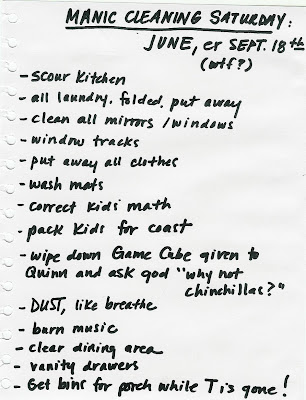 MANIC CLEANING SATURDAY:
JUNE, er SEPT. 18th
(wtf?)
- scour kitchen
- all laundry. folded. put away
- clean all mirrors /windows
- window tracks
- put away all clothes
- wash mats
- correct kids' math
- pack kids for coast
- wipe down Game Cube given to
Quinn and ask god "why not
chinchillas?"
- DUST, like breathe
- burn music
- clear dining area
- vanity drawers
- Get bins for porch while T is gone!